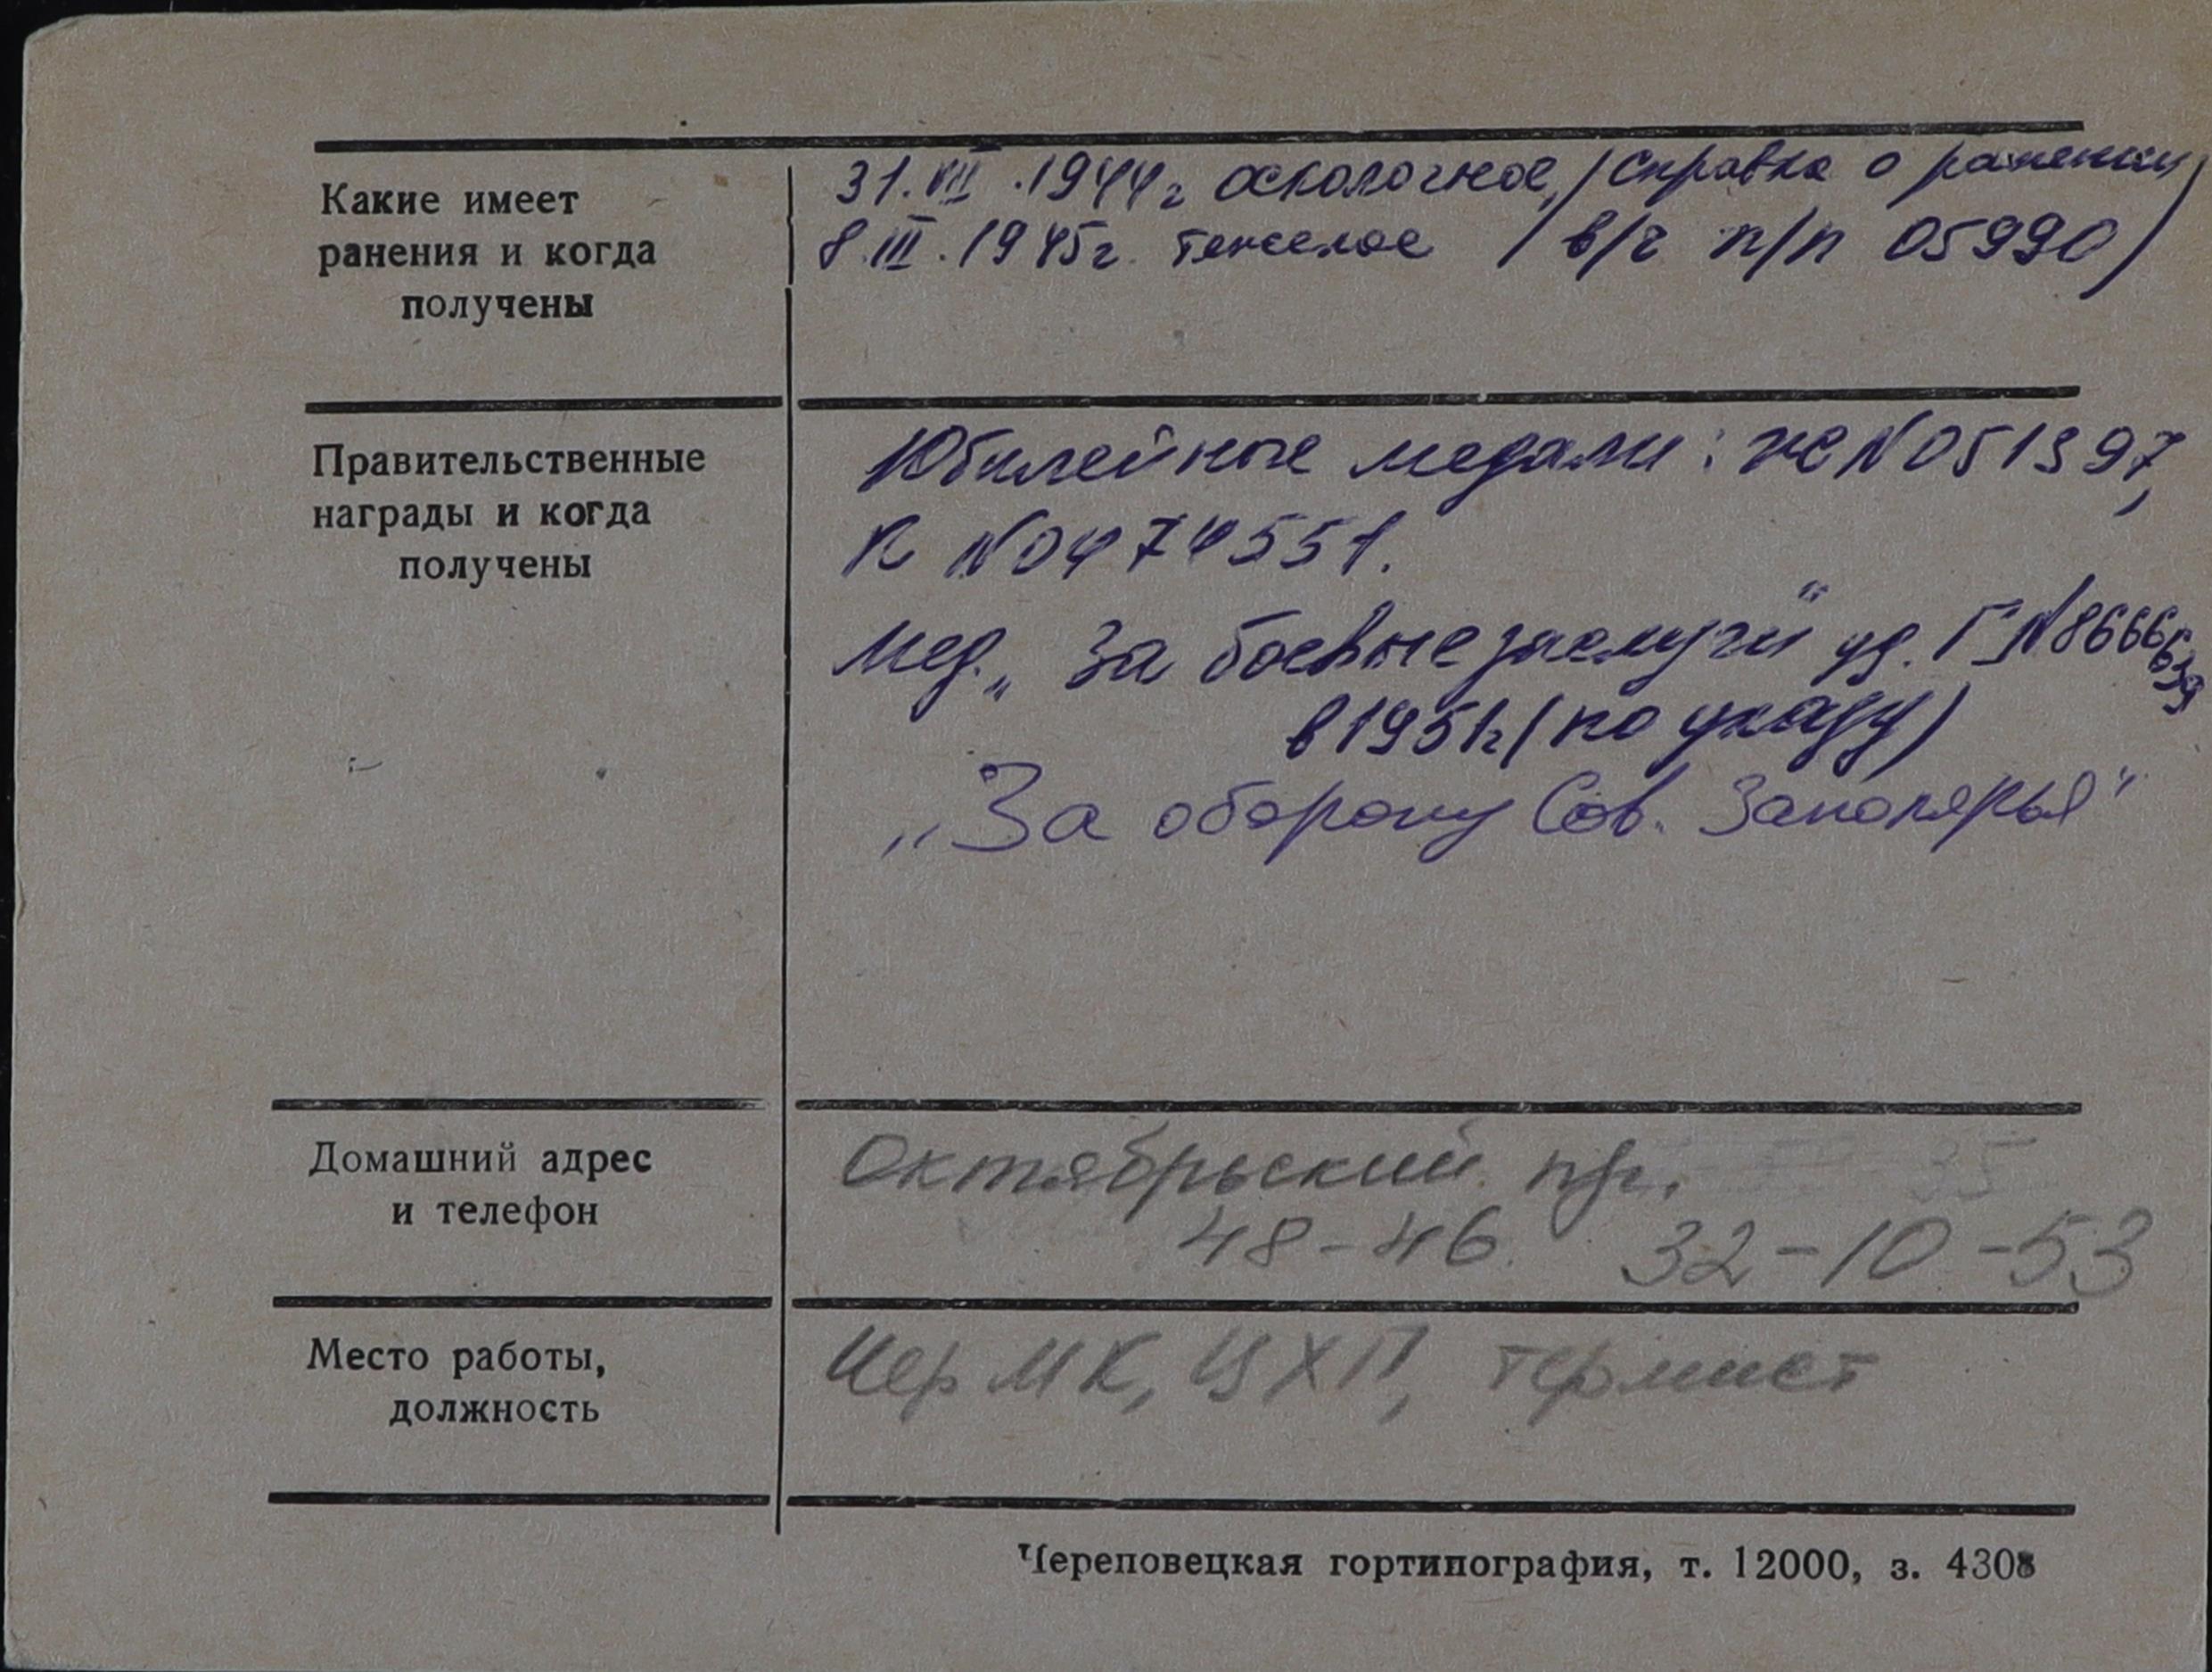 Какие имеет
ранения и когда
получены
31.VIII.1944г осколочное, /справка о ранении/
8.III.1945г. тежелое /в/ч п/п 05990/
Правительственные
награды и когда
получены
Юбилейные медали: же N051397,
К N0474551.
Мед. „За боевые заслуги" уд. Г N8666639
в 1951г (по указу)
„За оборону Сов. Заполярья"
Домашний адрес
и телефон
Октябрьский пр.
48-46 32-10-53
Место работы,
должность
ЧерМК, ЦХП, термист
Череповецкая гортипография, т. 12000, з. 4308